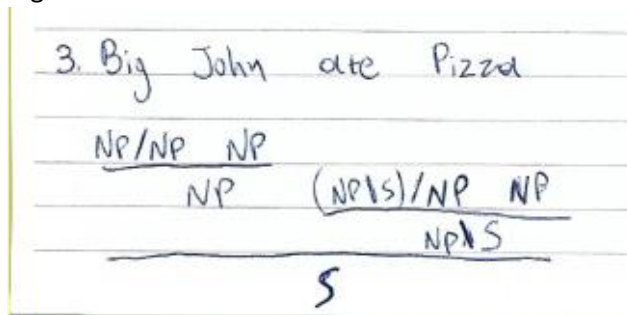 3. Big John ate Pizza
NP/NP NP
NP (NP\S)/NP NP
NP\S
S